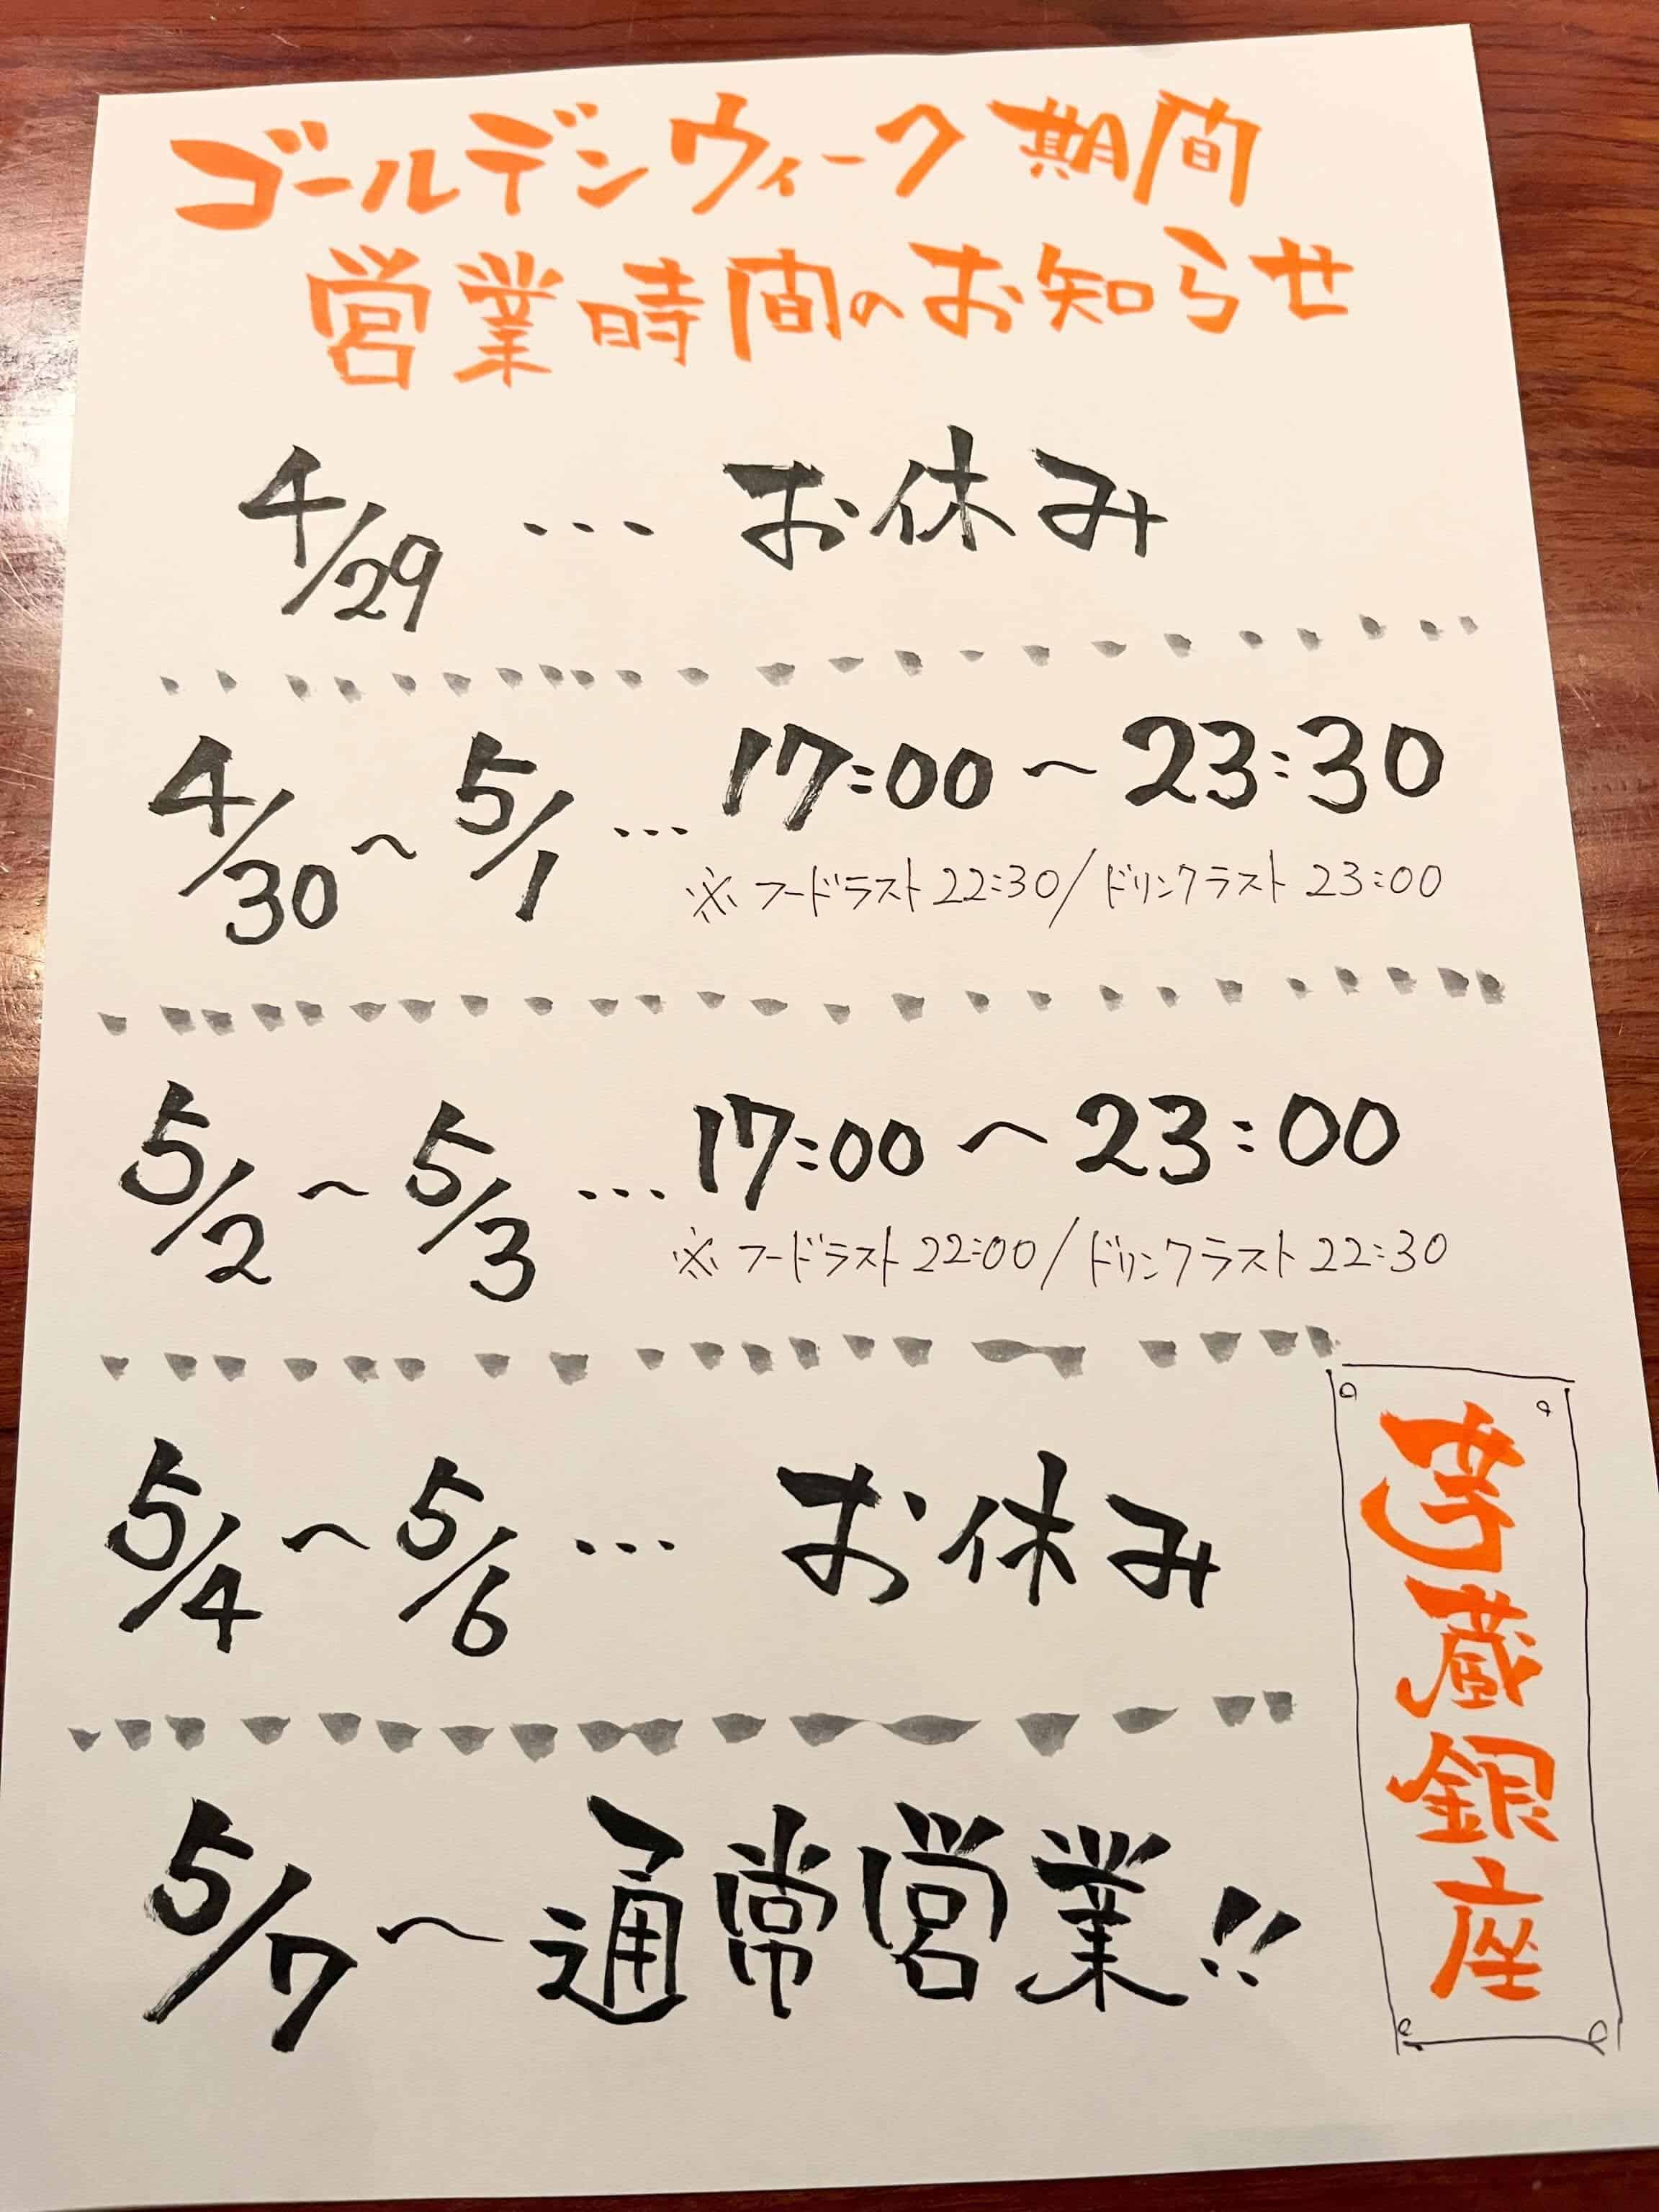 ゴールデンウィーク期間
営業時間のお知らせ
4/29 … お休み
4/30～5/1 … 17:00～23:30
※フードラスト22:30/ドリンクラスト23:00
5/2～5/3 … 17:00～23:00
※フードラスト22:00/ドリンクラスト22:30
5/4～5/6 … お休み
5/7～通常営業!!
芋蔵銀座